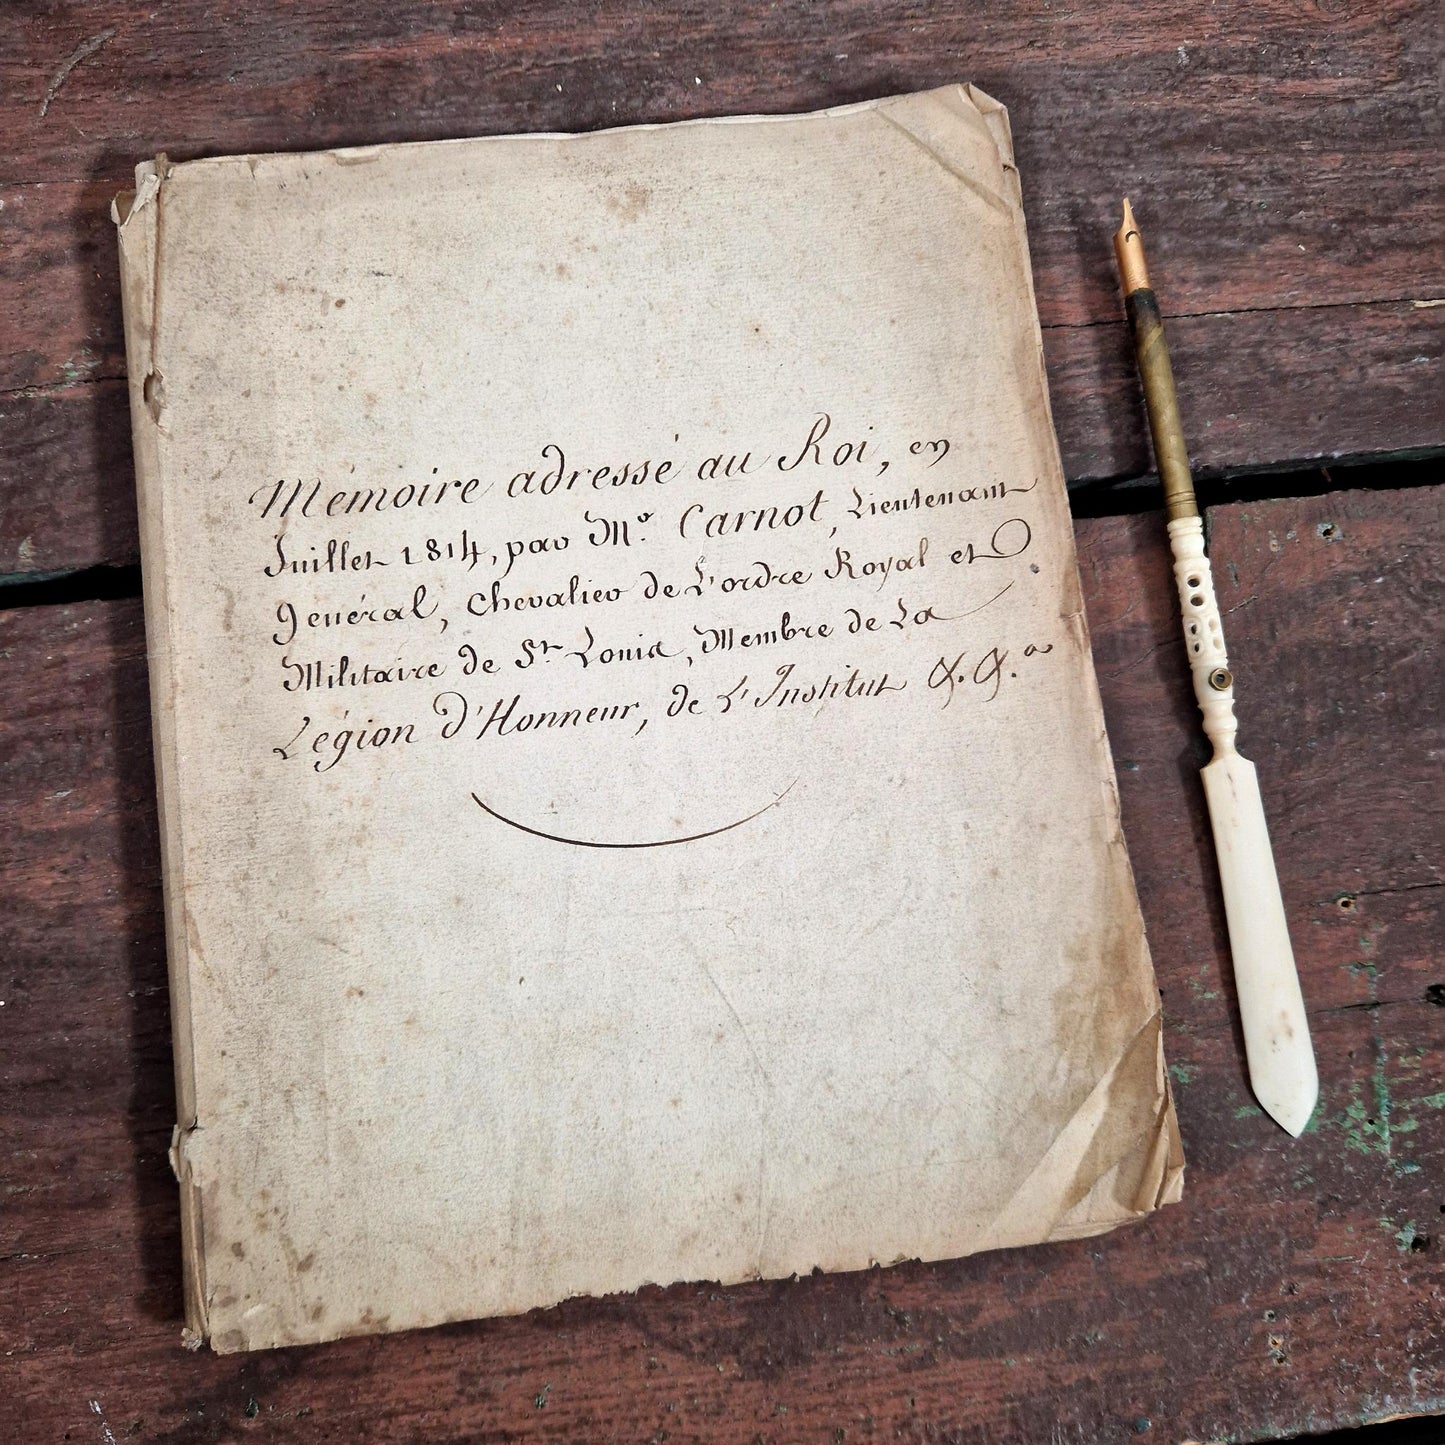 Mémoire adressé au Roi, en
Juillet 1814, par Mr. Carnot, Lieutenant
général, Chevalier de L'ordre Royal et
Militaire de St. Louis, Membre de La
Légion d'Honneur, de L'Institut &. &.a